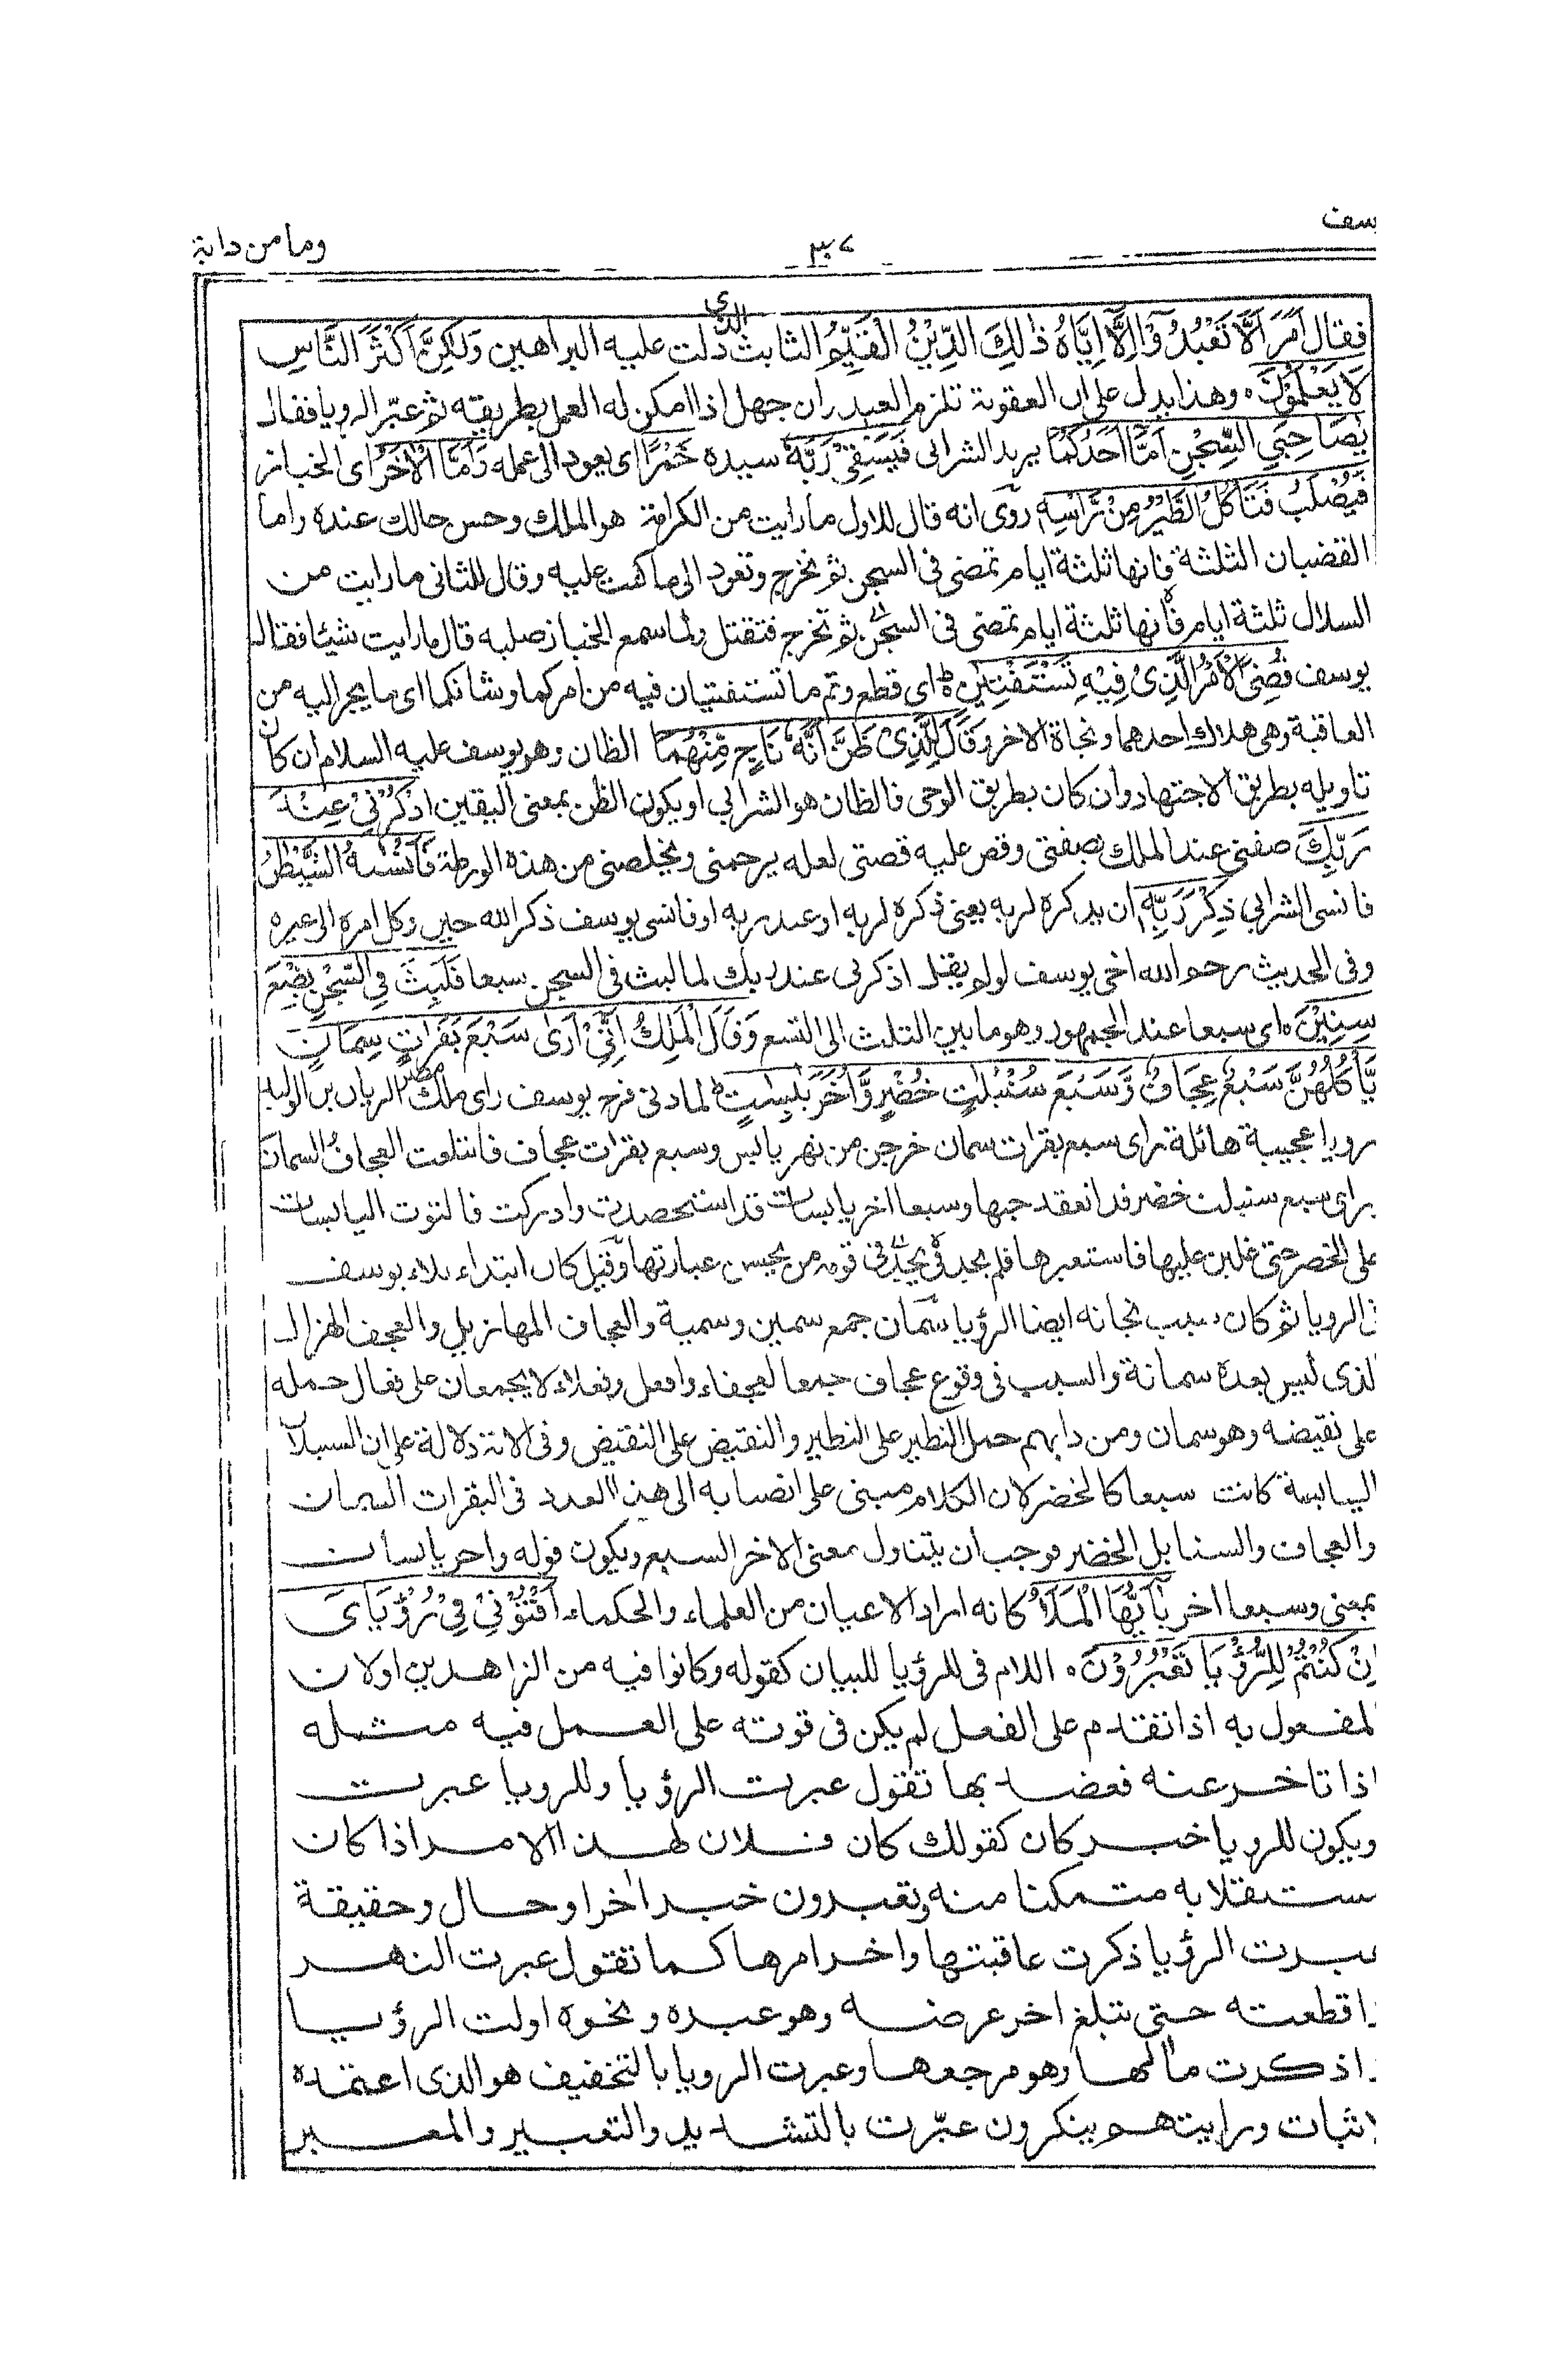 سف
٣٠٧
وما من دابة
فقال اَمَرَ اَلَّا تَعْبُدُوْۤا اِلَّاۤ اِيَّاهُ ذٰلِكَ الدِّيْنُ الْقَيِّمُ الثابت الذى دلت عليه البراهين وَلٰكِنَّ اَكْثَرَ النَّاسِ
لَا يَعْلَمُوْنَ ه وهذا يدل على ان العقوبة تلزم العبد ان جهل اذا امكن له العمل بطريقه ثم عبّر الرويا فقال
يٰصَاحِبَيِ السِّجْنِ اَمَّاۤ اَحَدُكُمَا يريد الشرابى فَيَسْقِيْ رَبَّهٗ سيده خَمْرًا اى يعود الى عمله وَاَمَّا الْاٰخَرُ اى الخباز
فَيُصْلَبُ فَتَاْكُلُ الطَّيْرُ مِنْ رَّاْسِهٖ روى انه قال للاول ما رايت من الكرامة هو الملك وحسن حالك عنده واما
القضبان الثلثة فانها ثلثة ايام تمضى فى السجن ثم تخرج وتعود الى ما كنت عليه وقال للثانى ما رايت من
السلال ثلثة ايام فانها ثلثة ايام تمضى فى السجن ثم تخرج فتقتل ولما سمع الخباز صلبه قال ما رايت شيئا فقال
يوسف قُضِيَ الْاَمْرُ الَّذِىْ فِيْهِ تَسْتَفْتِيٰنِ ه اى قطع وتم ما تستفتيان فيه من امركما وشانكما اى ما يجر اليه من
العاقبة وهى هلاك احدهما ونجاة الاخر وَقَالَ لِلَّذِىْ ظَنَّ اَنَّهٗ نَاجٍ مِّنْهُمَا الظان وهو يوسف عليه السلام ان كان
تاويله بطريق الاجتهاد وان كان بطريق الوحى فالظان هو الشرابى او يكون الظن بمعنى اليقين اذْكُرْنِيْ عِنْدَ
رَبِّكَ صفنى عند الملك بصفتى وقص عليه قصتى لعله يرحمنى ويخلصنى من هذه الورطة فَاَنْسٰىهُ الشَّيْطٰنُ
فانسى الشرابى ذِكْرَ رَبِّهٖ ان يذكره لربه يعنى ذكره لربه او عند ربه او فانسى يوسف ذكر الله حين وكل امره الى غيره
وفى الحديث رحم الله اخى يوسف لو لم يقل اذكرنى عند ربك لما لبث فى السجن سبعا فَلَبِثَ فِي السِّجْنِ بِضْعَ
سِنِيْنَ ه اى سبعا عند الجمهور وهو ما بين الثلث الى التسع وَقَالَ الْمَلِكُ اِنِّيْۤ اَرٰى سَبْعَ بَقَرَاتٍ سِمَانٍ
يَّاْكُلُهُنَّ سَبْعٌ عِجَافٌ وَّسَبْعَ سُنْۢبُلٰتٍ خُضْرٍ وَّاُخَرَ يٰبِسٰتٍ لما دنى فرج يوسف راى ملك مصر الريان بن الوليد
رويا عجيبة هائلة راى سبع بقرات سمان خرجن من نهر يابس وسبع بقرات عجاف فابتلعت العجاف السمان
وراى سبع سنبلت خضر قد انعقد حبها وسبعا اخر يابسات قد استحصدت وادركت فالتوت اليابسات
على الخضر حتى غلبن عليها فاستعبرها فلم يجد فى قومه من يحسن عبارتها وقيل كان ابتداء بلاء يوسف
فى الرويا ثم كان سبب نجاته ايضا الرؤيا سمان جمع سمين وسمينة والعجاف المهازيل والعجف الهزال
الذى ليس بعده سمانة والسبب فى وقوع عجاف جمعا لعجفاء وافعل وفعلاء لا يجمعان على فعال حمله
على نقيضه وهو سمان ومن دابهم حمل النظير على النظير والنقيض على النقيض وفى الاية دلالة على ان السنبلات
اليابسة كانت سبعا كالخضر لان الكلام مبنى على انصبابه الى هذا العدد فى البقرات السمان
والعجاف والسنابل الخضر فوجب ان يتناول معنى الاخر السبع ويكون قوله واخر يابسات
بمعنى وسبعا اخر يٰۤاَيُّهَا الْمَلَاُ كانه اراد الاعيان من العلماء والحكماء اَفْتُوْنِيْ فِيْ رُؤْيَايَ
اِنْ كُنْتُمْ لِلرُّؤْيَا تَعْبُرُوْنَ ه اللام فى للرؤيا للبيان كقوله وكانوا فيه من الزاهدين او لان
المفعول به اذا تقدم على الفعل لم يكن فى قوته على العمل فيه مثله
اذا تاخر عنه فعضد بها تقول عبرت الرؤيا وللرويا عبرت
ويكون للرويا خبر كان كقولك كان فلان لهذا الامر اذا كان
مستقلا به متمكنا منه وتعبرون خبر اخر او حال وحقيقة
عبرت الرؤيا ذكرت عاقبتها واخر امرها كما تقول عبرت النهر
اذا قطعته حتى تبلغ اخر عرضه وهو عبره ونحوه اولت الرؤيا
اذا ذكرت مالها وهو مرجعها وعبرت الرويا بالتخفيف هو الذى اعتمده
الاثبات ورايتهم ينكرون عبّرت بالتشديد والتعبير والمعبر